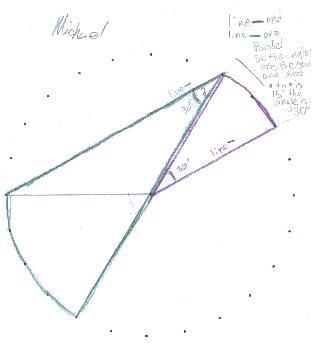 Michael
line — and
line — are
Parallel
so the angles
are the same
and since
• to • is
15° the
angle is
30°
line —
30°
?
30°
line —